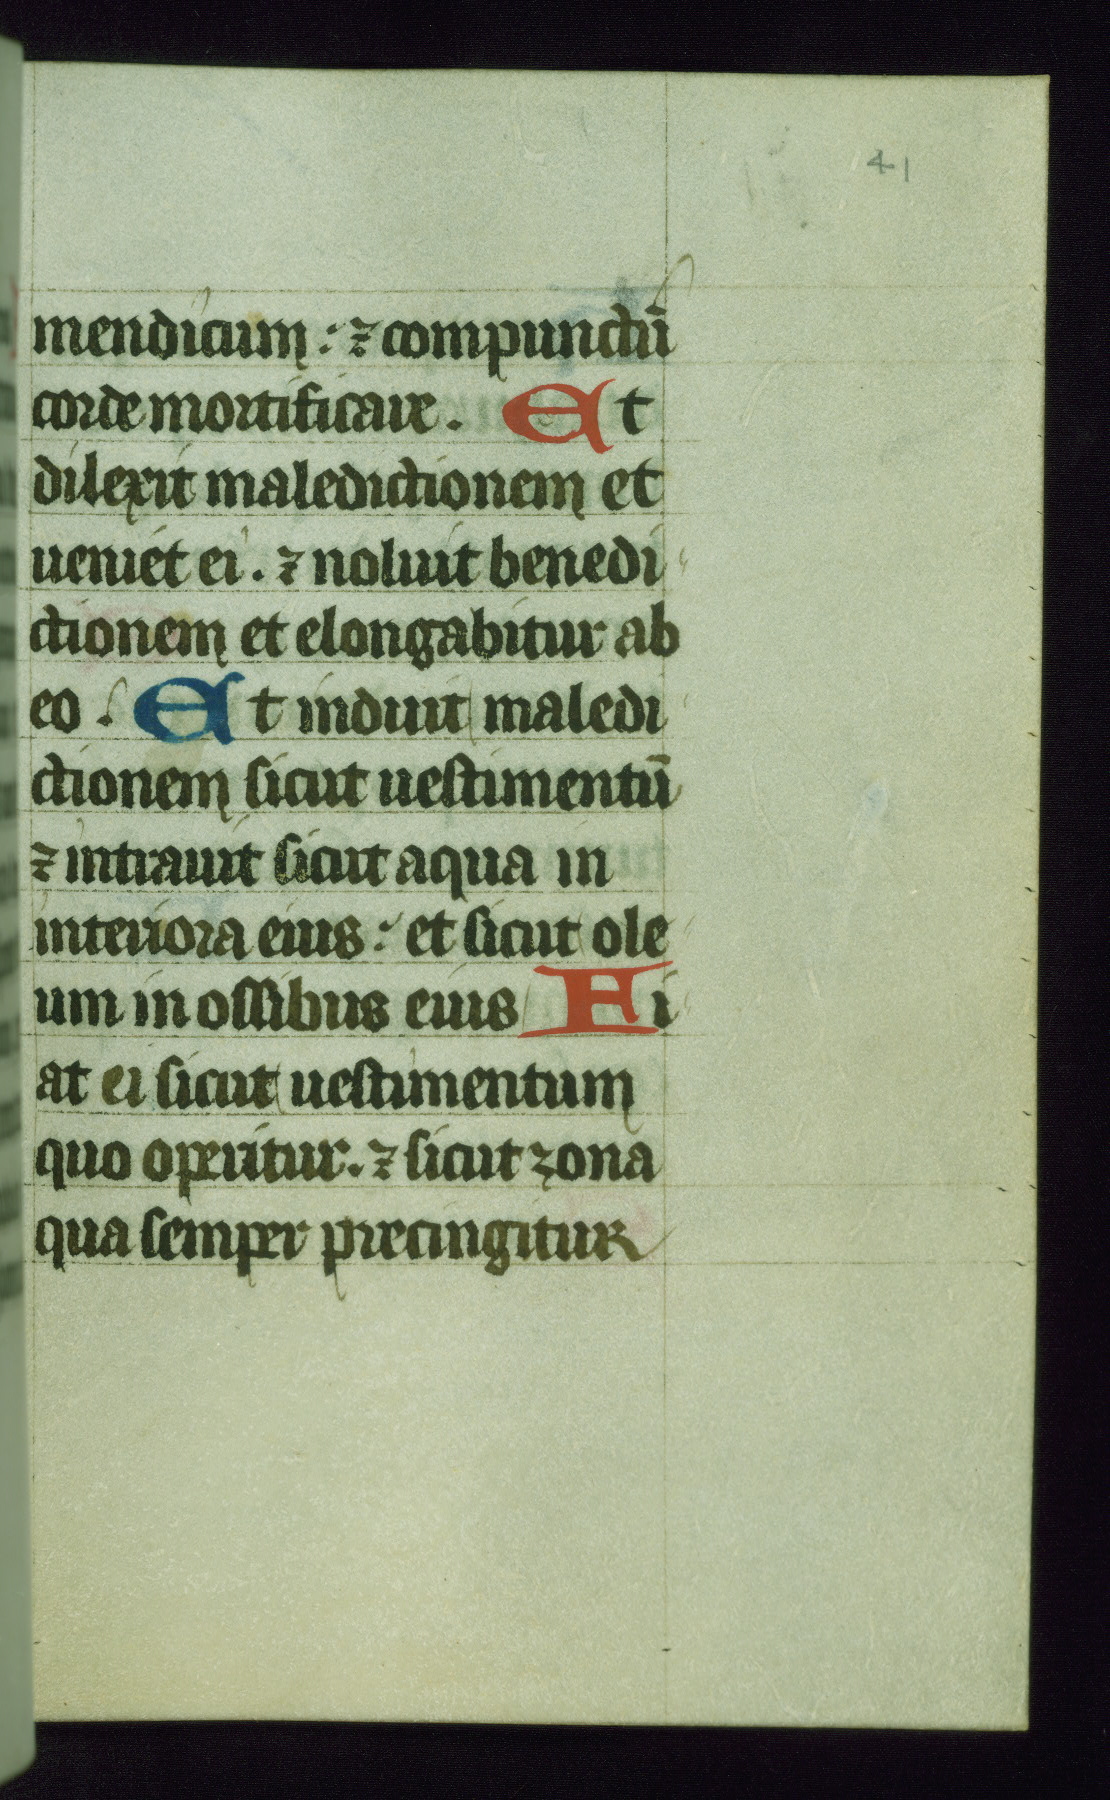 41
mendicum : ⁊ compunctū
corde mortificare . Et
dilexit maledictionem et
ueniet ei . ⁊ noluit benedi
ctionem et elongabitur ab
eo . Et induit maledi
ctionem sicut uestimentū
⁊ intrauit sicut aqua in
interiora eius : et sicut ole
um in ossibus eius Fi
at ei sicut uestimentum
quo operitur . ⁊ sicut zona
qua semper precingitur